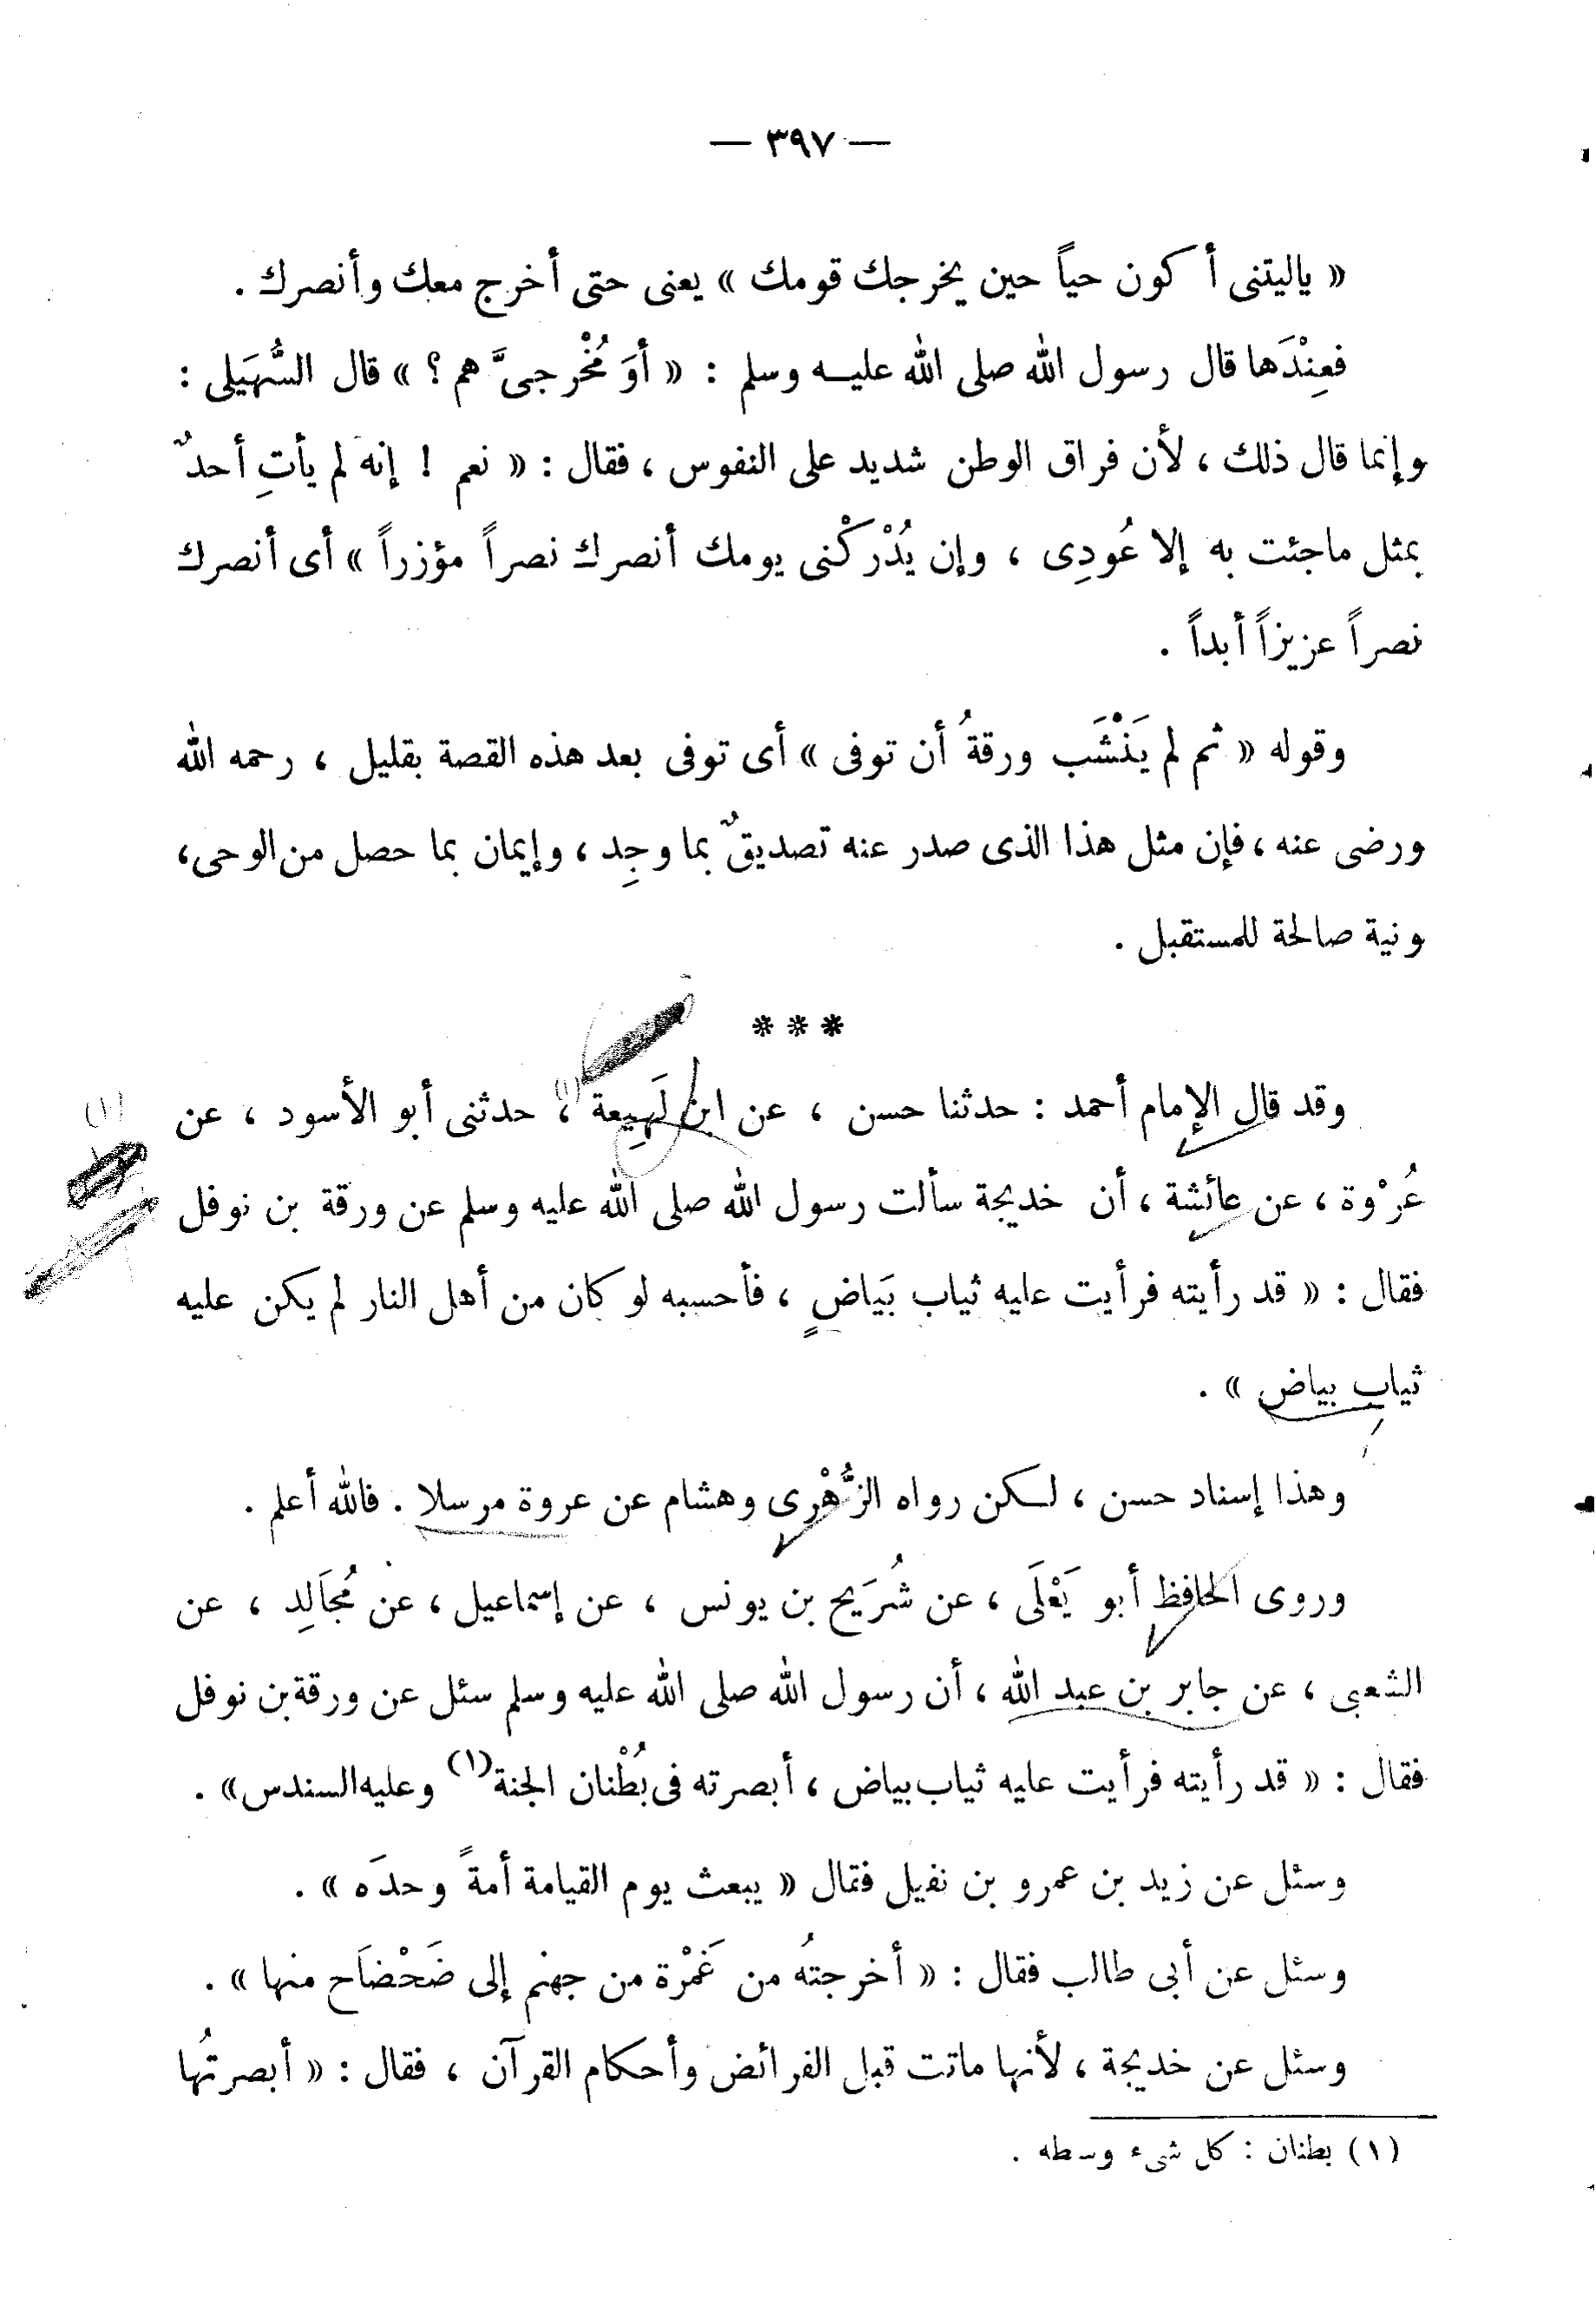 — ٣٩٧ —
« ياليتنى أكون حياً حين يخرجك قومك » يعنى حتى أخرج معك وأنصرك .
فعِنْدَها قال رسول الله صلى الله عليه وسلم : « أوَ مُخْرجىَّ هم ؟ » قال السُّهَيلى :
وإنما قال ذلك ، لأن فراق الوطن شديد على النفوس ، فقال : « نعم ! إنه لم يأتِ أحدٌ
بمثل ماجئت به إلا عُودِى ، وإن يُدْركْنى يومك أنصرك نصراً مؤزراً » أى أنصرك
نصراً عزيزاً أبداً .
وقوله « ثم لم يَنْشَب ورقةُ أن توفى » أى توفى بعد هذه القصة بقليل ، رحمه الله
ورضى عنه ، فإن مثل هذا الذى صدر عنه تصديقٌ بما وجِد ، وإيمان بما حصل من الوحى،
ونية صالحة للمستقبل .
***
وقد قال الإمام أحمد : حدثنا حسن ، عن ابن لَهِيعة (١) ، حدثنى أبو الأسود ، عن
(١)
عُرْوة ، عن عائشة ، أن خديجة سألت رسول الله صلى الله عليه وسلم عن ورقة بن نوفل
فقال : « قد رأيته فرأيت عليه ثياب بَياضٍ ، فأحسبه لو كان من أهل النار لم يكن عليه
ثياب بياض » .
وهذا إسناد حسن ، لكن رواه الزُّهْرى وهشام عن عروة مرسلا . فالله أعلم .
وروى الحافظ أبو يَعْلَى ، عن شُرَيح بن يونس ، عن إسماعيل ، عن مُجَالِد ، عن
الشعبى ، عن جابر بن عبد الله ، أن رسول الله صلى الله عليه وسلم سئل عن ورقة بن نوفل
فقال : « قد رأيته فرأيت عليه ثياب بياض ، أبصرته فى بُطْنان الجنة(١) وعليه السندس» .
وسئل عن زيد بن عمرو بن نفيل فقال « يبعث يوم القيامة أمةً وحدَه » .
وسئل عن أبى طالب فقال : « أخرجتُه من غَمْرة من جهنم إلى ضَحْضَاح منها » .
وسئل عن خديجة ، لأنها ماتت قبل الفرائض وأحكام القرآن ، فقال : « أبصرتُها
(١) بطنان : كل شىء وسطه .